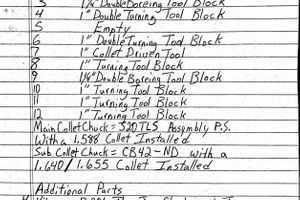 3 1¼" Double Boreing Tool Block
4 1" Double Turning Tool Block
5 Empty
6 1" Double Turning Tool Block
7 1" Collet Driven Tool
8 1" Turning Tool Block
9 1¼" Double Boreing Tool Block
10 1" Turning Tool Block
11 1" Turning Tool Block
12 1" Turning Tool Block
Main Collet Chuck = S20TLS Assembly P.S.
With a 1.588 Collet Installed
Sub Collet Chuck = CB42-ND with a
1.640/1.655 Collet Installed
Additional Parts